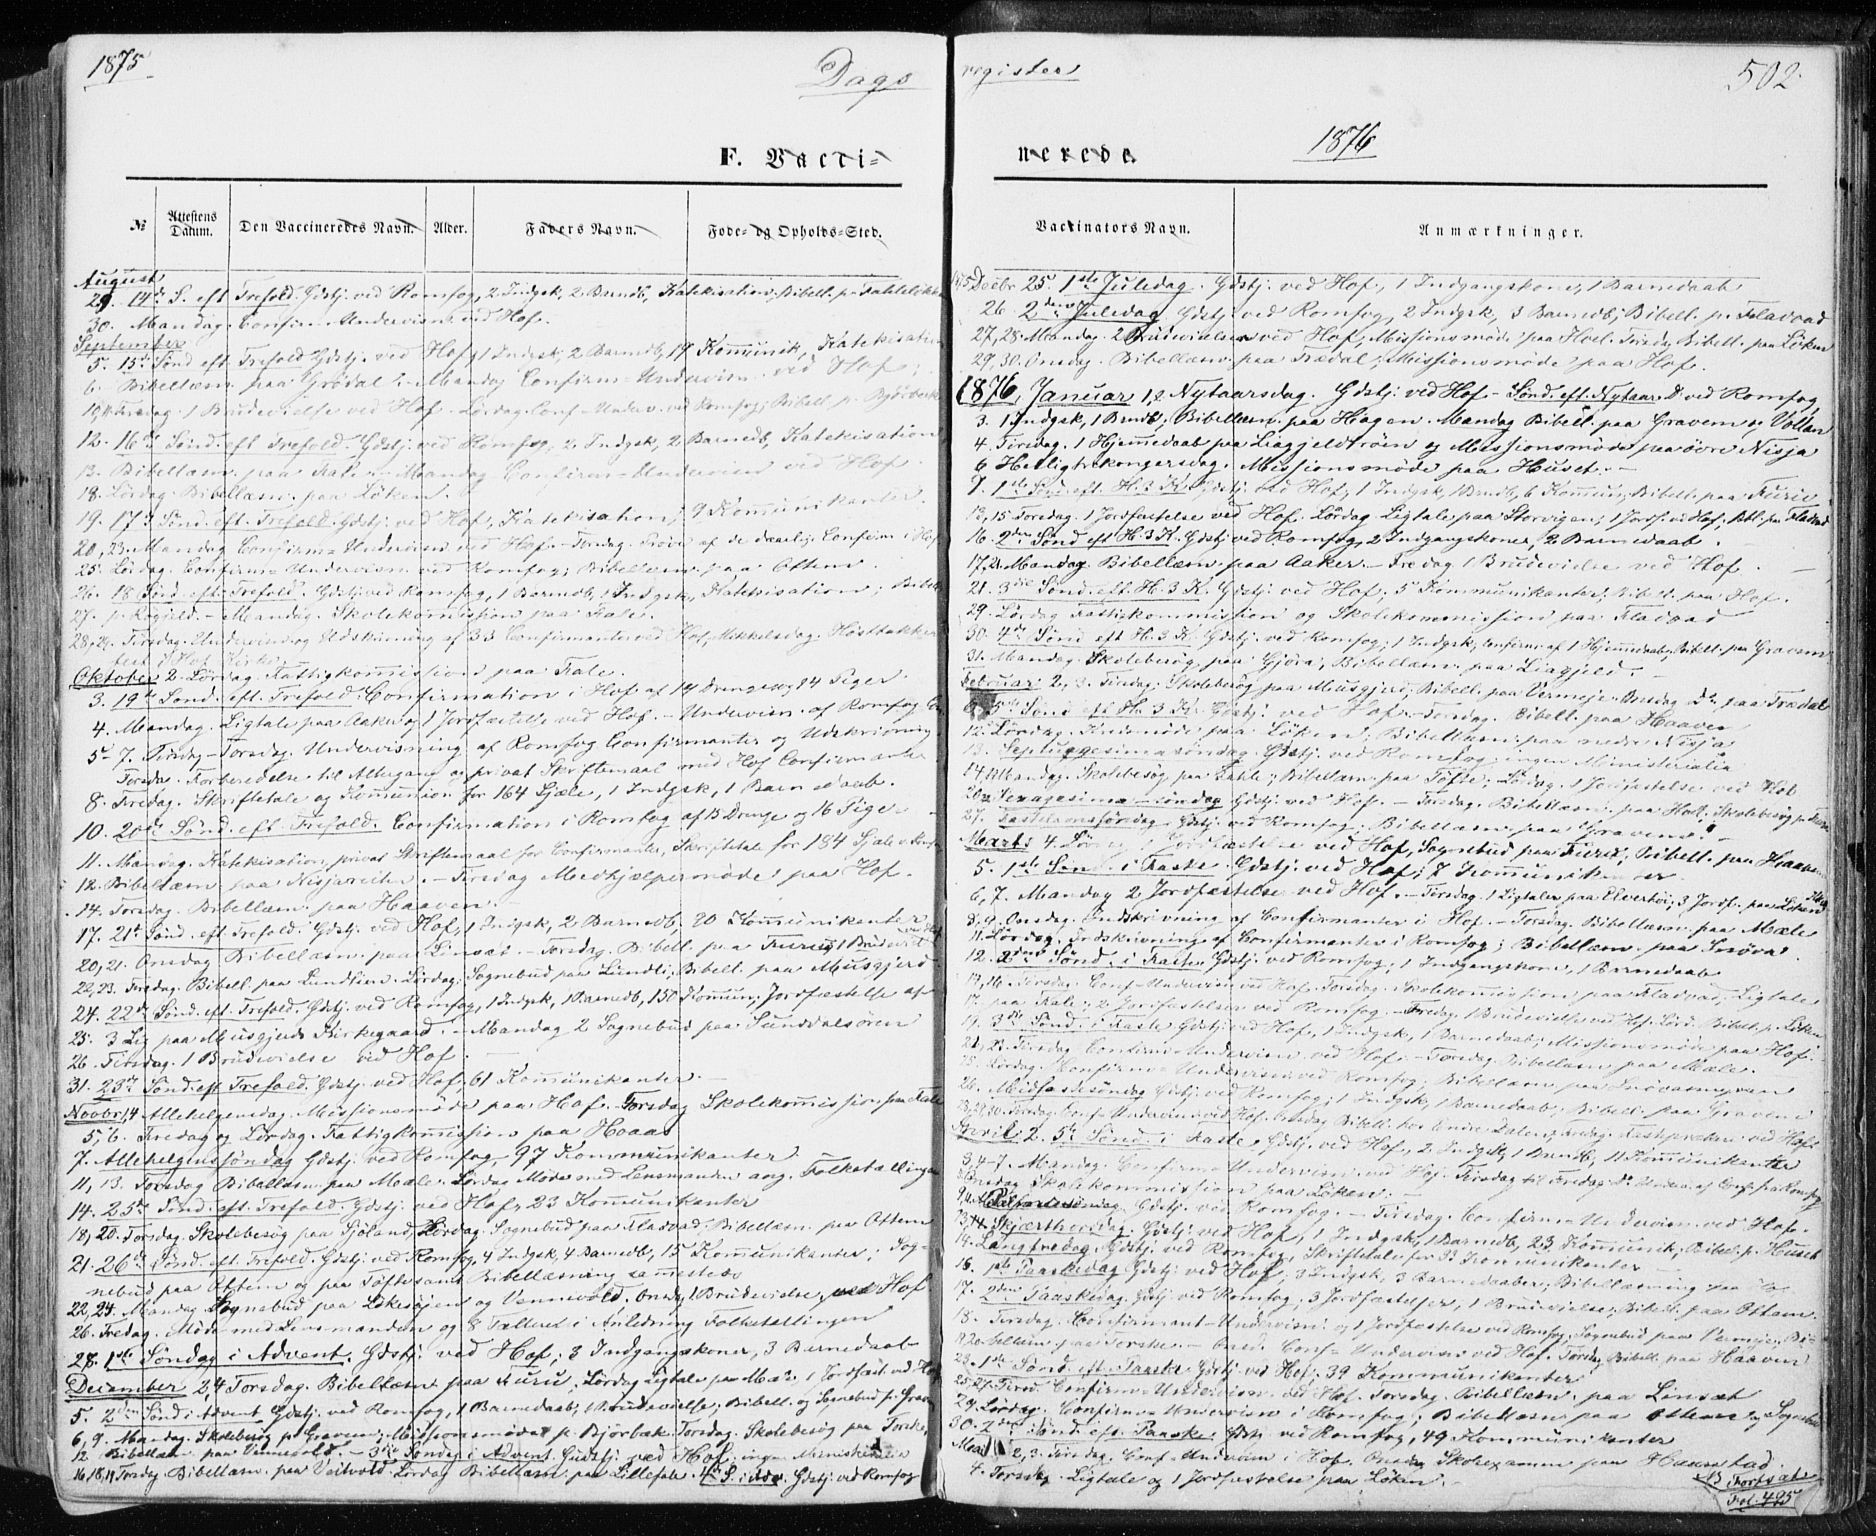 1875
Dags
F. Vacci-
№ Attestens Datum. Den Vaccineredes Navn. Alder. Faders Navn. Føde- og Opholds-Sted.
August
29. 14de S. eft Trefold. Gdstj. ved Romfog, 2 Indgsk, 2 Barndb, Katekisation, Bibell. p.
30. Mandag. Confirm-Undervisn. ved Hof.
September
5. 15de Sønd eft. Trefold Gdstj. ved Hof, 1 Indgsk, 2 Barndb, 19 Kommunik, Katekisation
6. Bibellæsn. paa Grødal. - Mandag Confirm-Undervisn. ved Hof;
Fredag. 1 Brudevielse ved Hof. Lørdag. Conf-Underv. ved Romfog; Bibell. p. Bjørbæk
12. 16de Sønd. eft Trefold. Gdstj. ved Romfog, 2 Indgsk, 2 Barndb, Katekisation
13. Bibellæsn. paa Fale. - Mandag Confirm-Undervisn ved Hof.
18. Lørdag. Bibellæsn. paa Løken.
19. 17de Sønd. eft. Trefold. Gdstj. ved Hof, Katekisation, 9 Kommunikanter.
20, 23. Mandag Confirm-Undervisn ved Hof. - Torsdag. Prøve af de daarlige Confirm i Hof
25. Lørdag. Confirm-Undervisn ved Romfog; Bibellæsn. paa Ottem.
26. 18 Sønd. eft. Trefold. Gdstj. ved Romfog, 1 Barndb, 1 Indgsk, Katekisation; Bibell
27. p. - Mandag. Skolekommission paa Fale.
28, 29. Tirsdag. Undervisn og Udskrivning af 33 Confirmanter ved Hof, Mikkelsdag. Høsttakke
fest i Hof Kirke.
Oktober 2. Lørdag. Fattigkommission paa Fale.
3. 19de Sønd. eft. Trefold. Confirmation i Hof af 14 Drenge og 14 Piger.
4. Mandag. Ligtale paa Aaker og 1 Jordfæstelse ved Hof. - Undervisn. af Romfog
5-7. Tirsdag-Torsdag. Undervisning af Romfog Confirmanter og Udskrivning
Torsdag. Forberedelse til Altergang og privat Skriftemaal med Hof Confirmanter
8. Fredag. Skriftetale og Kommunion for 164 Sjæle, 1 Indgsk, 1 Barnedaab.
10. 20de Sønd. eft. Trefold. Confirmation i Romfog af 15 Drenge og 16 Piger -
11. Mandag. Katekisation, privat Skriftemaal for Confirmanter, Skriftetale for 184 Sjæle
12. Bibellæsn. paa Nisjareiten. - Tirsdag Medhjælpermøde paa Hof.
14. Torsdag. Bibellæsn. paa Haaven. -
17. 21de Sønd. eft. Trefold. Gdstj. ved Hof, 1 Indgsk, 2 Barndb, 20 Kommunikanter
20, 21. Onsdag Bibellæsn. paa Linsæt. - Torsdag. Bibell. paa Furu, 1 Brudeviels
22, 23. Fredag. Bibell. paa Lundlien. Lørdag. Sognebud paa Lundli, Bibell. paa Musgjerd
24. 22de Sønd. eft. Trefold. Gdstj. ved Romfog, 1 Indgsk, 1 Barndb, 150 Kommun; Jordfæstelse af
25. 3 Lig paa Musgjerds Kirkegaard. - Mandag 2 Sognebud paa Sunddalsøren
26. Tirsdag. 1 Brudevielse ved Hof. -
31. 23de Sønd. eft. Trefold. Gdstj. ved Hof, 61 Kommunikanter. -
Novbr. 1, 4 Allehelgensdag. Missionsmøde paa Hof. Torsdag Skolekommission paa Fale
5, 6. Fredag og Lørdag. Fattigkommission paa Hoaas
7. Allehelgenssøndag Gdstj. ved Romfog, 97 Kommunikanter
11, 13. Torsdag Bibellæsn. paa Mæle. Lørdag Møde med Lensmanden ang. Folketællingen
14. 25de Sønd. eft. Trefold. Gdstj. ved Hof, 23 Kommunikanter
18, 20. Torsdag. Skolebesøg paa Sjøland, Lørdag. Sognebud paa Fladvad, Bibellæsn. paa Ottem
21. 26de Sønd. eft. Trefold. Gdstj. ved Romfog, 4 Indgsk, 4 Barndb, 15 Kommunikanter; Sog-
nebud paa Ottem og paa Toftesand. Bibellæsning samesteds
22, 24. Mandag Sognebud paa Løkesøjen og Vennevold. Onsdag 1 Brudevielse ved Hof
26. Fredag. Møde med Lensmanden og 8 Tællere i Anledning Folketællingen
28. 1ste Søndag i Advent. Gdstj. ved Hof; 3 Indgangskoner, 3 Barnedaab
December 2, 4 Torsdag. Bibellæsn. paa Furu, Lørdag Ligtale paa Mæle. 1 Jordfæst ved Hof
5. 2den Sønd i Advent Gdstj. ved Romfog, 1 Barnedaab; 1 Brudevielse; Bibell. og Sognebud p. Graven
6, 9. Mandag. Skolebesøg p. Graven; Missionsmøde p. Bjørbæk. Torsdag. Skolebesøg paa Torske
12 Bibellæsn paa Vennevold. - 3die Søndag i Advent. Gudstj. ved Hof, ingen Ministerialia
16, 18, 19 Torsdag Bibellæsn. paa Veitvold. Lørdag Bibellæsn. paa Lillefale. 4de S. i do. Gdstj. ved Romfog
register
502.
nerede.
1876
Vaccinators Navn. Anmærkninger.
Decbr 25. 1ste Juledag. Gdstj. ved Hof, 1 Indgangskone, 1 Barnedaab
26. 2den Juledag Gdstj. ved Romfog, 2 Indgsk, 3 Barnedb; Bibell. p. Fladvad
27, 28. Mandag. 2 Brudevielser ved Hof; Missionsmøde paa Hoel. Tirsdag Bibell. paa Løken
29, 30. Onsdag Bibellæsn. paa Trædal; Missionsmøde paa Hof.
1876, Januar 1, 2 Nytaarsdag. Gdstj. ved Hof - Sønd. eft. Nytaar D. ved Romfog
3. 1 Indgsk, 1 Brndb, Bibellæsn. paa Hagen. Mandag Bibell. paa Gravem og Vollan
4. Tirsdag. 1 Hjemmedaab paa Liagjeldtrøen og Missionsmøde paa øvre Nisja
6 Helligtrekongersdag. Missionsmøde paa Huset. -
9. 1ste Sønd eft. H. 3 K. Gdstj. ved Hof, 1 Indgsk, 1 Brndb, 6 Kommun, Bibell. paa Furu.
13, 15 Torsdag. 1 Jordfæstelse ved Hof. Lørdag Ligtale paa Storvigen; 1 Jordf. v. Hof. Bibl. paa Fladvad
16. 2den Sønd eft H. 3 K. Gdstj. ved Romfog, 2 Indgangskoner, 2 Barnedaab.
17, 21. Mandag. Bibellæsn. paa Aaker. - Fredag 1 Brudevielse ved Hof. -
3die Sønd. eft. H. 3 K. Gdstj. ved Hof, 5 Kommunikanter; Bibell. paa Hof.
29. Lørdag. Fattigkommission og Skolekommission paa Fladvad
30. 4de Sønd eft H. 3 K. Gdstj. ved Romfog, 1 Indgsk, Confirm. af 1 Hjemmedaab, Bibell. paa Gravem
31. Mandag. Skolebesøg paa Gjøra; Bibellæsn. paa Liagjeld. -
Februar. 2, 3. Tirsdag; Skolebesøg paa Musgjerd; Bibell. paa Vermeje. Onsdag do. paa Trædal
6. 5te Sønd eft H. 3 K. Gdstj. ved Hof. - Torsdag. Bibell. paa Haaven
12. Lørdag. paa Løken, Bibellæsn. paa nedre Nisja
13. Septuagesimasøndag. Gdstj. ved Romfog, ingen Ministerialia
14. Mandag. Skolebesøg paa Fahle; Bibellæsn. paa Tofte; Lørdag. 1 Jordfæstelse ved Hof.
20. Sexagesima-søndag Gdstj. ved Hof. - Torsdag. Bibellæsn. paa Hoel, Skolebesøg p. Furu
27. Fastelavnssøndag. Gdstj. ved Romfog; Bibellæsn. paa Gravem. -
Marts 4. Lørdag. Jordfæstelse ved Hof, Sognebud paa Furu, Bibell. paa Haaven
5. 1ste Sønd. i Faste. Gdstj. ved Hof; 7 Kommunikanter
6, 7. Mandag 2 Jordfæstelse ved Hof. - Tirsdag. 1 Ligtale paa Elverhøi; 3 Jordf. paa Løken
8, 9. Onsdag. Indskrivning af Confirmanter i Hof. - Torsdag. Bibellæsn. paa Mæle
11. Lørdag. Indskrivning af Confirmanter i Romfog; Bibellæsn. paa Snøva.
12. 2den Sønd. i Faste Gdstj. ved Romfog, 1 Indgangskone, 1 Barnedaab
Tirsdag. Conf-Undervisn ved Hof. Torsdag. Skolekommission paa Fladvad, Ligtale
17. paa Fale. 2 Jordfæstelser ved Romfog. - Fredag. 1 Brudevielse ved Hof. Lørd. Bibell. p. Løken
19. 3die Sønd. i Faste Gdstj. ved Hof, 1 Indgsk, 1 Barnedaab; Missionsmøde paa Hof. -
21, 23. Tirsdag Confirm-Undervisn ved Hof. - Torsdag. Bibellæsn paa Mæle.
25. Lørdag. Confirm-Undervisn ved Romfog; Bibellæsn paa Snøvasmyren
26. Midfastesøndag Gdstj. ved Romfog; 1 Indgsk, 1 Barnedaab; Bibell. paa Graven
Tirsdag. Conf-Undervisn ved Hof. Onsdag Bibell. hos Endre Fale. Fredag. Fasteprædiken ved Hof
April. 2. 5te Sønd. i Faste Gdstj. ved Hof, 2 Indgsk, 1 Barndb, 11 Kommunikanter
3, 4-7. Mandag. Confirm-Undervisn ved Hof. Tirsdag til Fredag do. Underv. af Conf. fra Romfog
Onsdag Skolekommission paa Løken. -
Palmesøndag. Gdstj. ved Romfog. - Tirsdag. Confirm-Undervisn. ved Hof.
13. Skjærthorsdag. Gdstj. ved Hof, 1 Indgsk, 1 Barnedb, 23 Kommunik, Bibel. p. Huset
14. Langfredag. Gdstj. ved Romfog, Skriftetale for 33 Kommunikanter
16. 1ste Paaskedag Gdstj. ved Hof, 3 Indgsk, 3 Barnedaaber; Bibellæsning paa
17. 2den Paaskedag. Gdstj. ved Romfog; 3 Jordfæstelser, 1 Brudevielse; Bibell. paa Ottem.
18. Tirsdag. Confirmant-Undervisn. og 1 Jordfæstelse ved Romfog. Sognebud paa Vermeje; Bi-
bellæsn paa Torske. - Onsd. Conf-Undervisn ved Hof. Torsdag Bibell. paa Haaven
23. 1ste Sønd. eft. Paaske Gdstj. ved Hof; 39 Kommunikanter
25, 27. Tirsd. Confirm-Undervisn. ved Hof. Torsdag. Bibellæsn. paa Linsæt
29. Lørdag. Confirm-Undervisn i Romfog; Bibellæsn paa Ottem og Sognebud
30. 2den Sønd. eft. Paaske. Gdstj. ved Romfog, 49 Kommunikanter
Mai 2, 3. Tirsdag. Conf-Undervisn i Hof. Onsdag Skoleexamen paa Haarstad.
4. Torsdag. Ligtale og 1 Jordfæstelse paa Løken.
NB Fortsat
Fol. 495